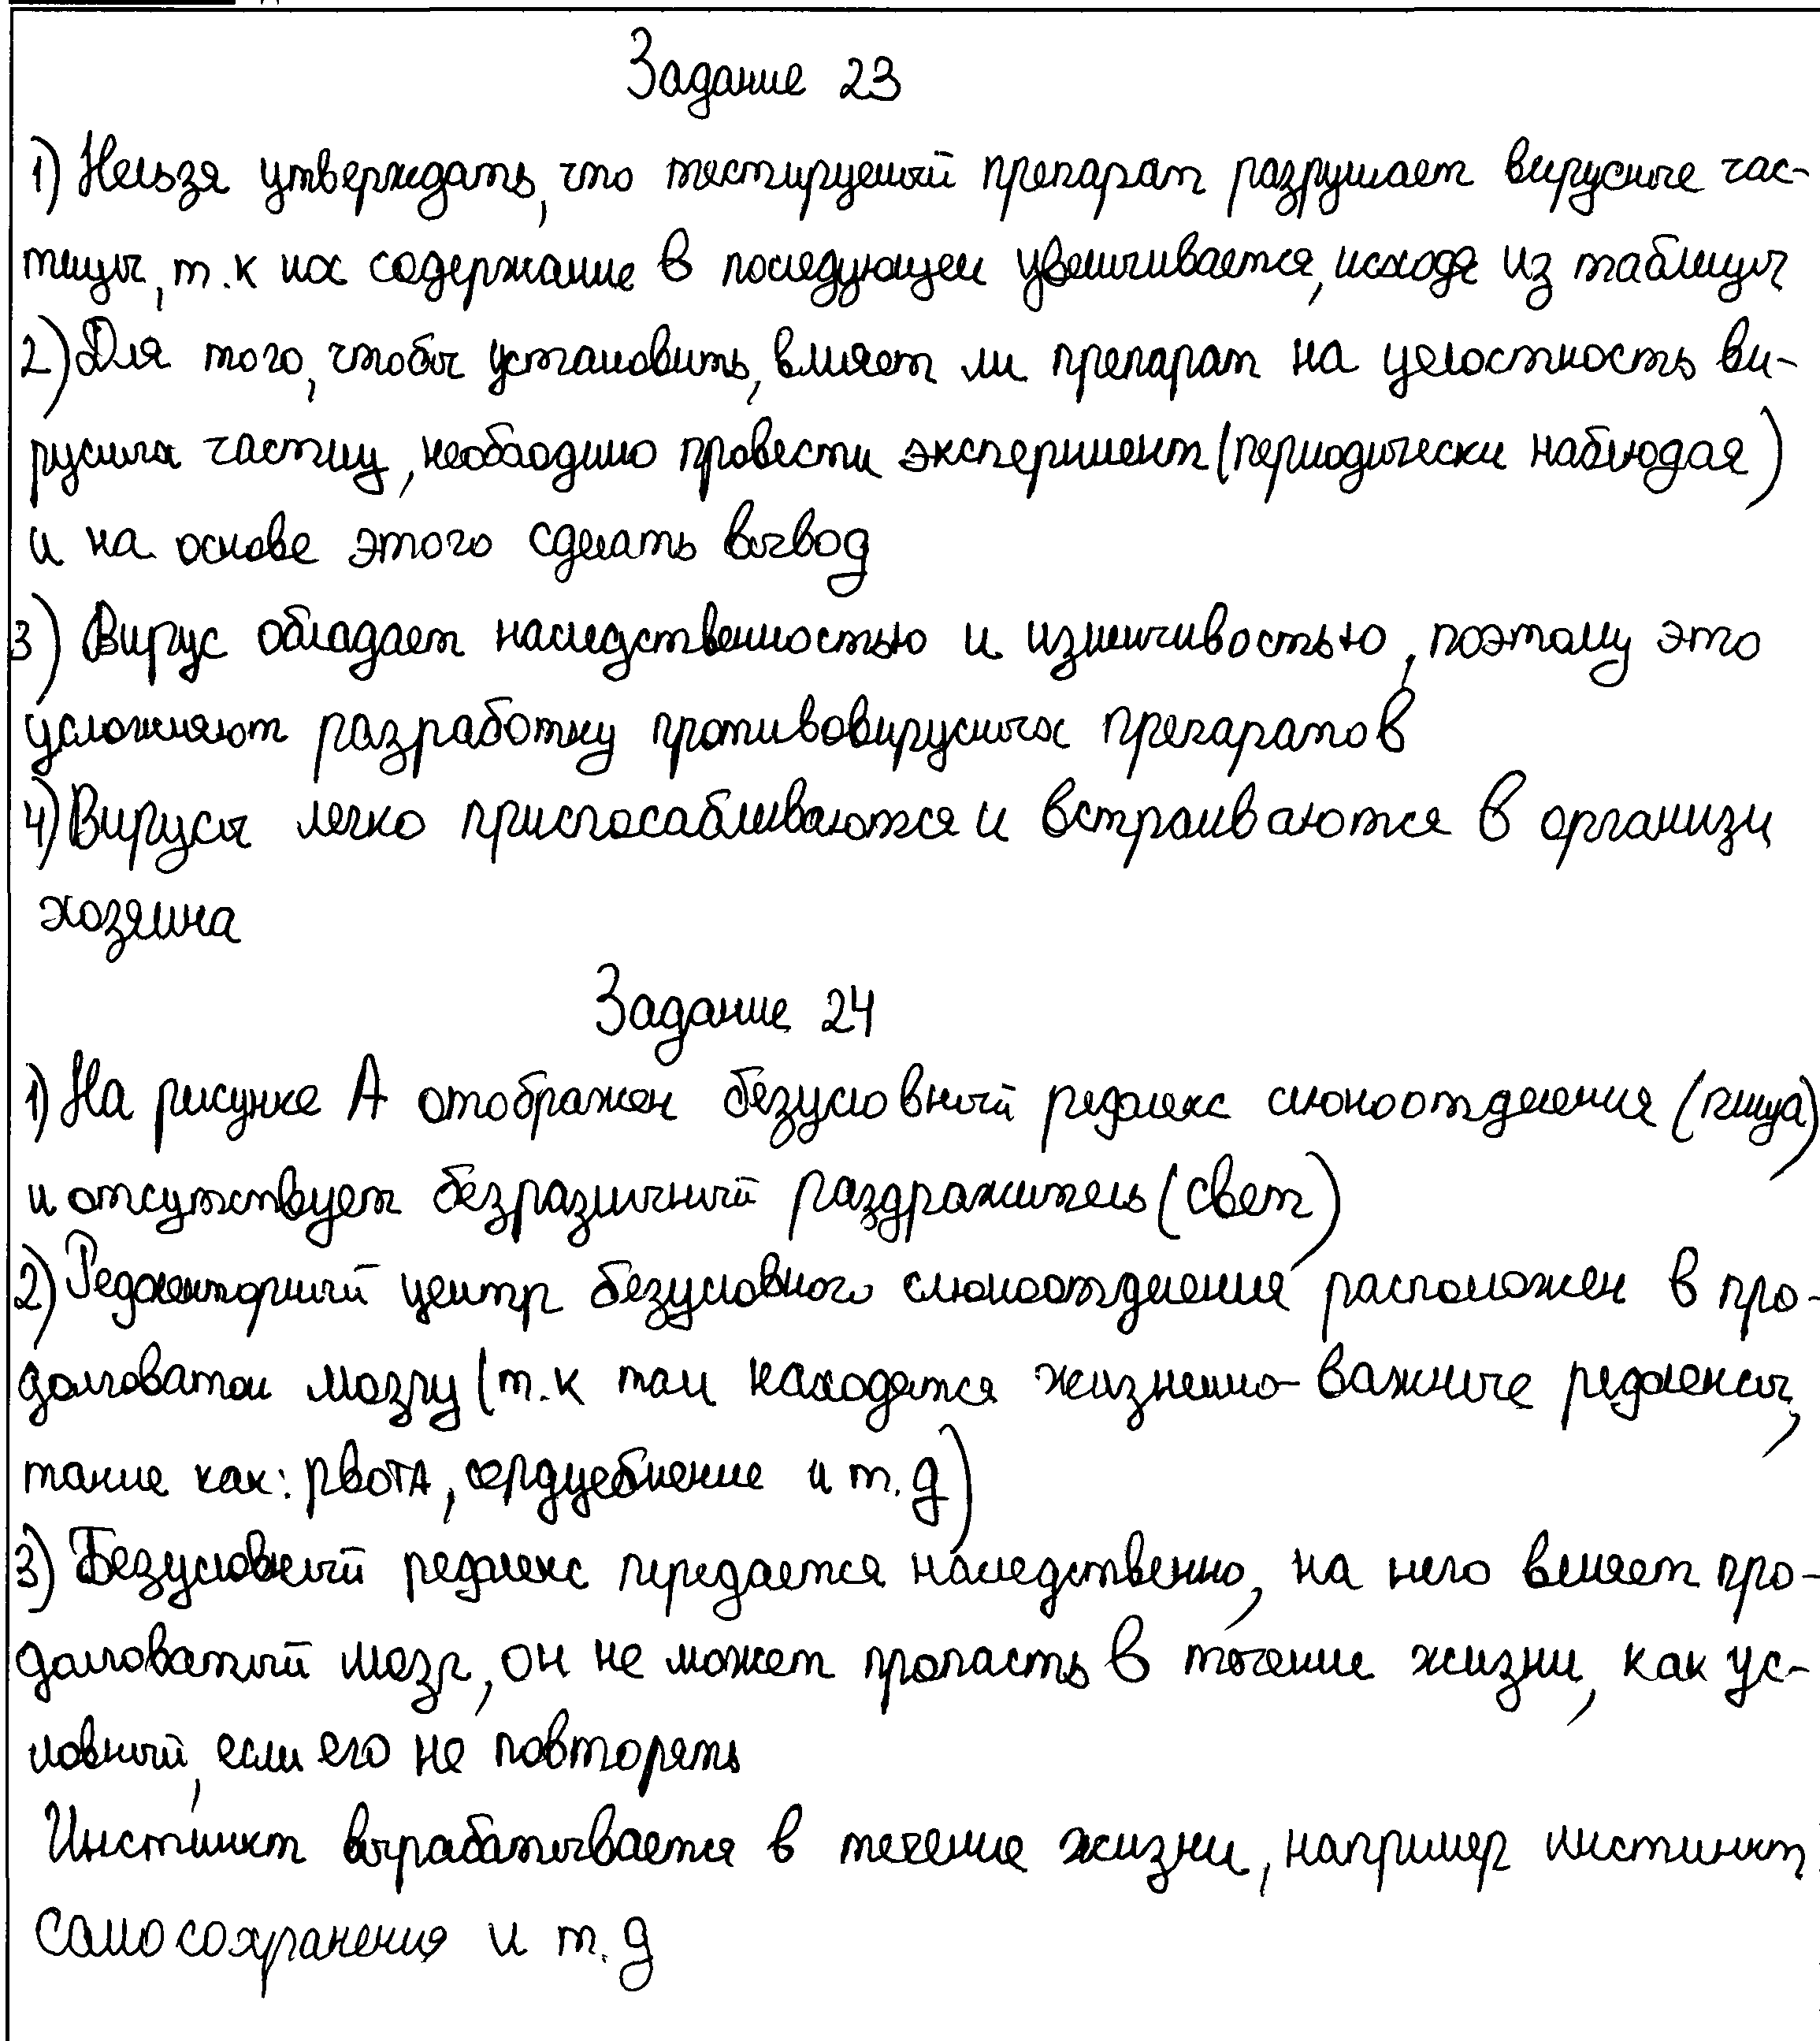 Задание 23
1) Нельзя утверждать, что тестируемый препарат разрушает вирусные час-
тицы, т.к их содержание в последующем увеличивается, исходя из таблицы
2) Для того, чтобы установить, влияет ли препарат на целостность ви-
русных частиц, необходимо провести эксперимент (периодически наблюдая)
и на основе этого сделать вывод
3) Вирус обладает наследственностью и изменчивостью, поэтому это
усложняют разработку противовирусных препаратов
4) Вирусы легко приспосабливаются и встраиваются в организм
хозяина
Задание 24
1) На рисунке А отображен безусловный рефлекс слюноотделения (пища)
и отсутствует безразличный раздражитель (свет)
2) Рефлекторный центр безусловного слюноотделения расположен в про-
долговатом мозгу (т.к там находятся жизненно-важные рефлексы,
такие как: рвота, сердцебиение и т.д)
3) Безусловный рефлекс передается наследственно, на него влияет про-
долговатый мозг, он не может пропасть в течение жизни, как ус-
ловный, если его не повторять
Инстинкт вырабатывается в течение жизни, например инстинкт
самосохранения и т.д